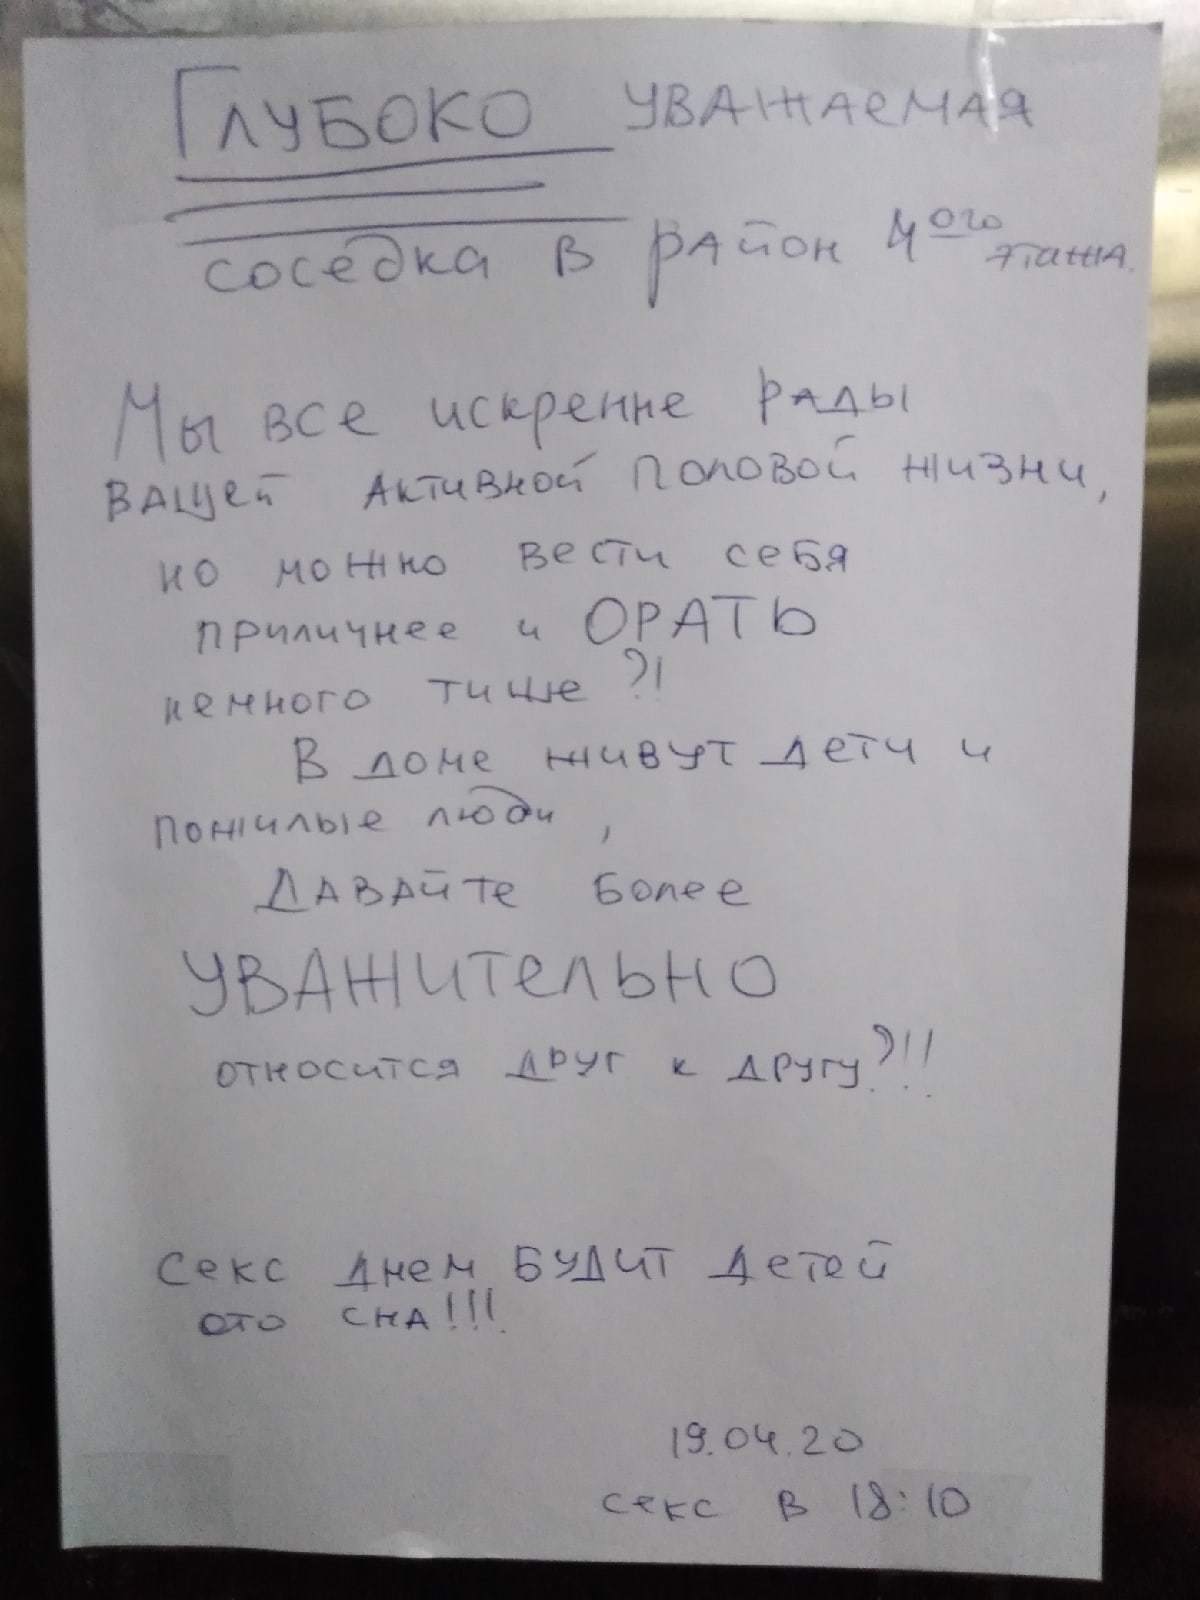 ГЛУБОКО УВАЖАЕМАЯ
СОСЕДКА В РАЙОН 4ОГО ЭТАЖА.
МЫ ВСЕ ИСКРЕННЕ РАДЫ
ВАШЕЙ АКТИВНОЙ ПОЛОВОЙ ЖИЗНИ,
НО МОЖНО ВЕСТИ СЕБЯ
ПРИЛИЧНЕЕ И ОРАТЬ
НЕМНОГО ТИШЕ?!
В ДОМЕ ЖИВУТ ДЕТИ И
ПОЖИЛЫЕ ЛЮДИ,
ДАВАЙТЕ БОЛЕЕ
УВАЖИТЕЛЬНО
ОТНОСИТСЯ ДРУГ К ДРУГУ?!!
СЕКС ДНЕМ БУДИТ ДЕТЕЙ
ОТО СНА!!!
19.04.20
СЕКС В 18:10